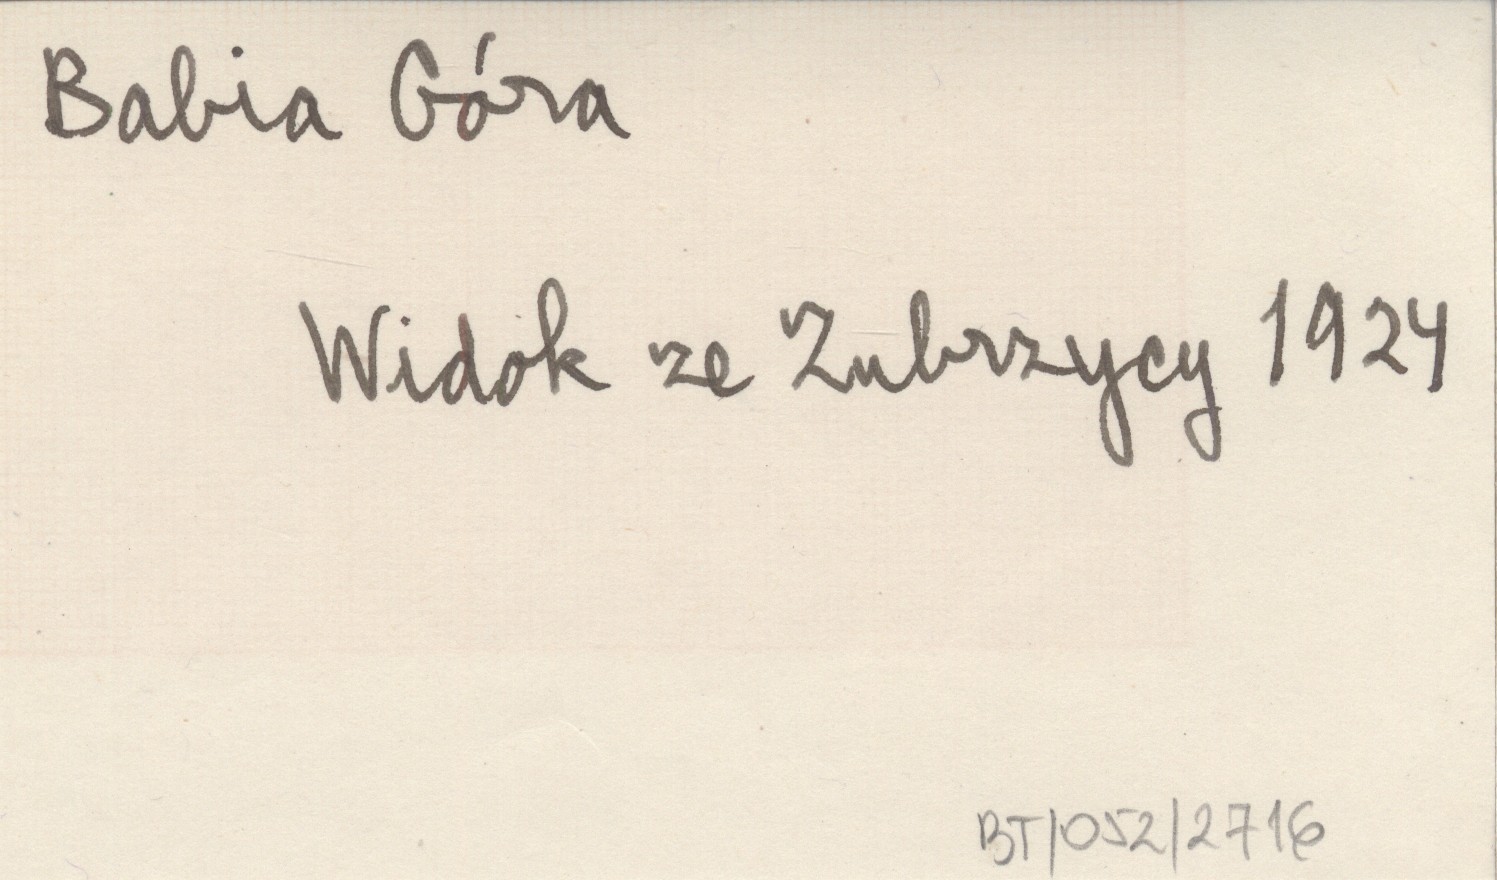 Babia Góra
Widok ze Zubrzycy 1924
BT/052/2716